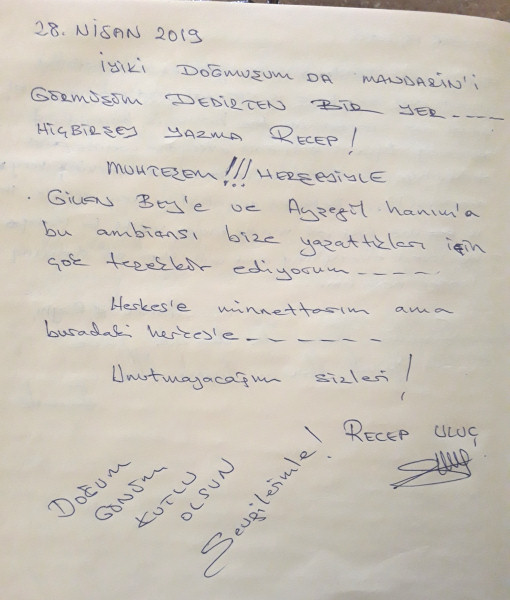 28. NİSAN 2019
İYİKİ DOĞMUŞUM DA MANDARİN'İ
GÖRMÜŞÜM DEDİRTEN BİR YER ----
HİÇBİRŞEY YAZMA RECEP!
MUHTEŞEM !!! HERŞEYİYLE
. GİVEN BEY'e ve Ayşegül hanım'a
bu ambiansı bize yarattıkları için
çok teşekkür ediyorum -----.
Herkes'e minnettarım ama
buradaki herkes'e - - - - - -
Unutmayacağım sizleri!
RECEP ULUÇ
Sevgilerimle!
DOĞUM
GÜNÜM
KUTLU
OLSUN